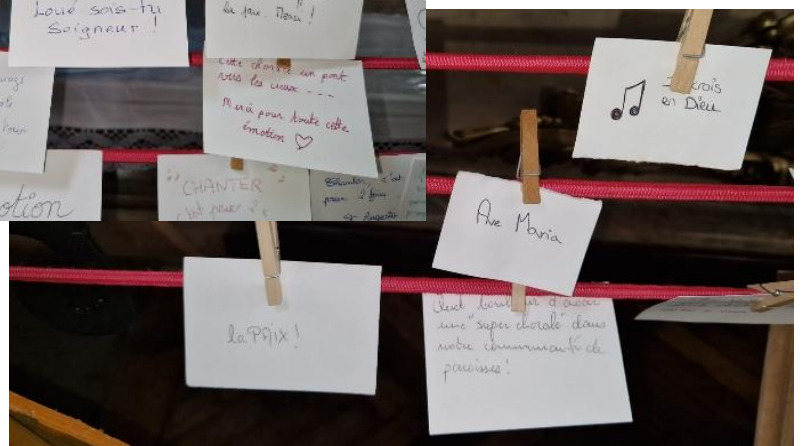 Loué sois-tu
Seigneur !
la paix. Merci !
Cette chorale un pont
vers les cieux ....
Merci pour toute cette
émotion ♡
CHANTER
c'est prier 2x
Chanter, c'est
prier 2 fois
St Augustin
crois
en Dieu
Ave Maria
la PAIX !
Quel bonheur d'avoir
une "super chorale" dans
notre communauté de
paroisses !